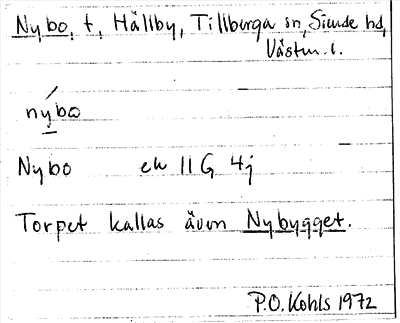 Nybo, t, Hällby, Tillberga sn, Siende hd,
Västm. l.
nybo
Nybo ek 11G 4j
Torpet kallas även Nybygget.
P.O. Kohls 1972